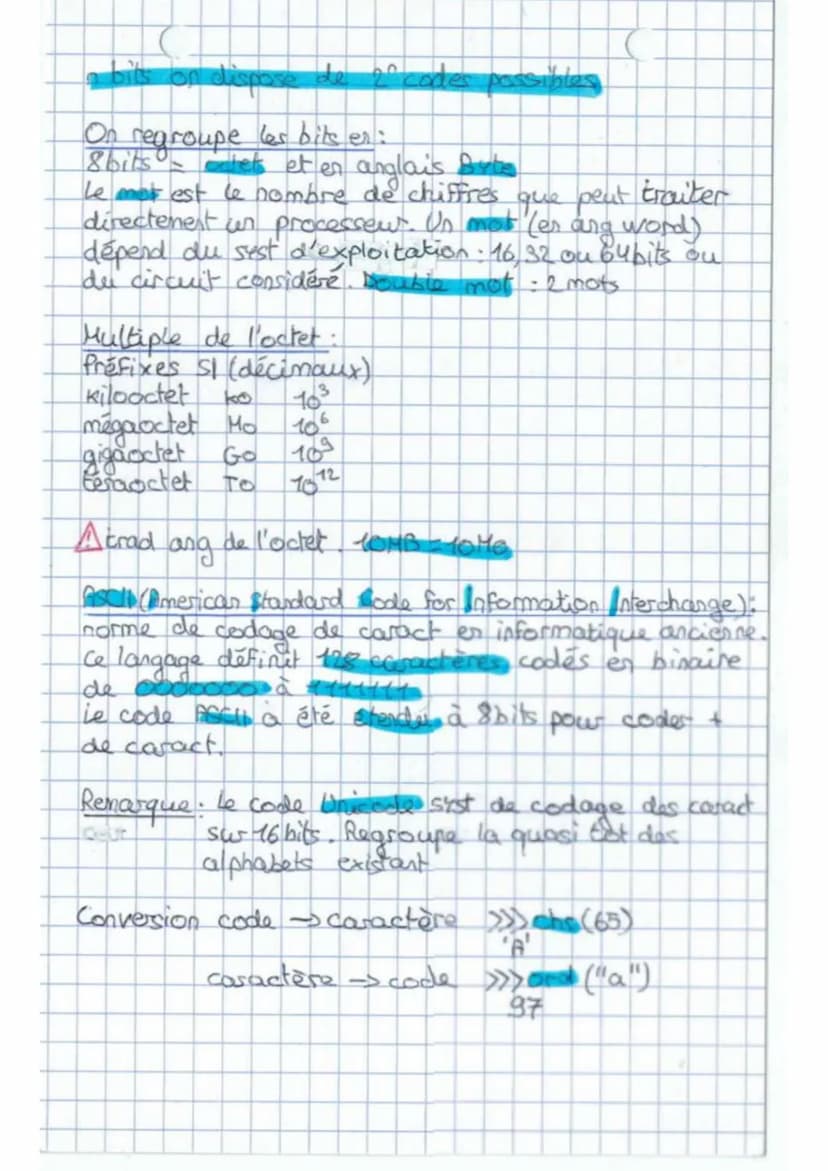 n bits on dispose de 2ⁿ codes possibles
On regroupe les bits en :
8bits = octet et en anglais Byte
Le mot est le nombre de chiffres que peut traiter
directement un processeur. Un mot (en ang word)
dépend du syst d'exploitation : 16, 32 ou 64bits ou
du circuit considéré. Double mot : 2 mots
Multiple de l'octet :
Préfixes SI (décimaux)
kilooctet ko 10³
mégaoctet Mo 10⁶
gigaoctet Go 10⁹
téraoctet To 10¹²
⚠ trad ang de l'octet. 10MB = 10Mo
ASCII (American Standard Code for Information Interchange) :
norme de codage de caract en informatique ancienne.
Ce langage définit 128 caractères codés en binaire
de 0000000 à 1111111
Le code ASCII a été étendu à 8bits pour coder +
de caract.
Remarque : Le code Unicode syst de codage des caract
sur 16 bits. Regroupe la quasi tot des
alphabets existant
Conversion code → caractère >>> chr(65)
'A'
caractère → code >>> ord("a")
97